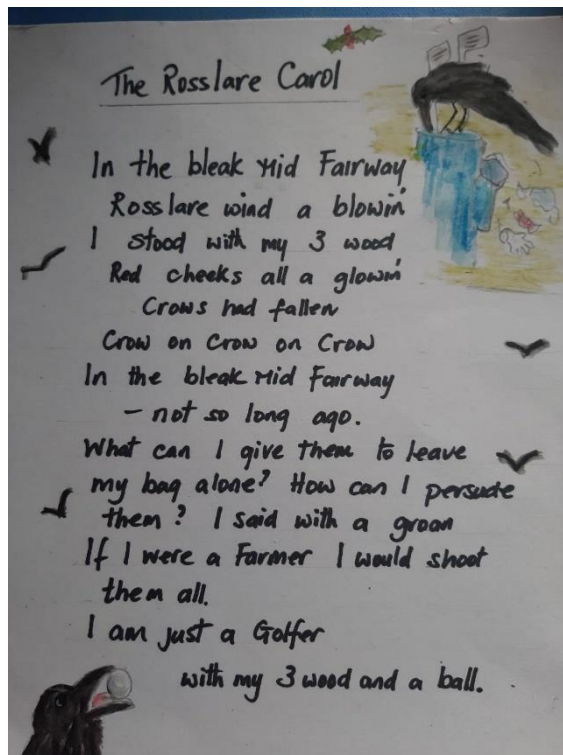 The Rosslare Carol
In the bleak Mid Fairway
Rosslare wind a blowin'
I stood with my 3 wood
Red cheeks all a glowin'
Crows had fallen
Crow on Crow on Crow
In the bleak Mid Fairway
- not so long ago.
What can I give them to leave
my bag alone? How can I persuade
them? I said with a groan
If I were a Farmer I would shoot
them all.
I am just a Golfer
with my 3 wood and a ball.